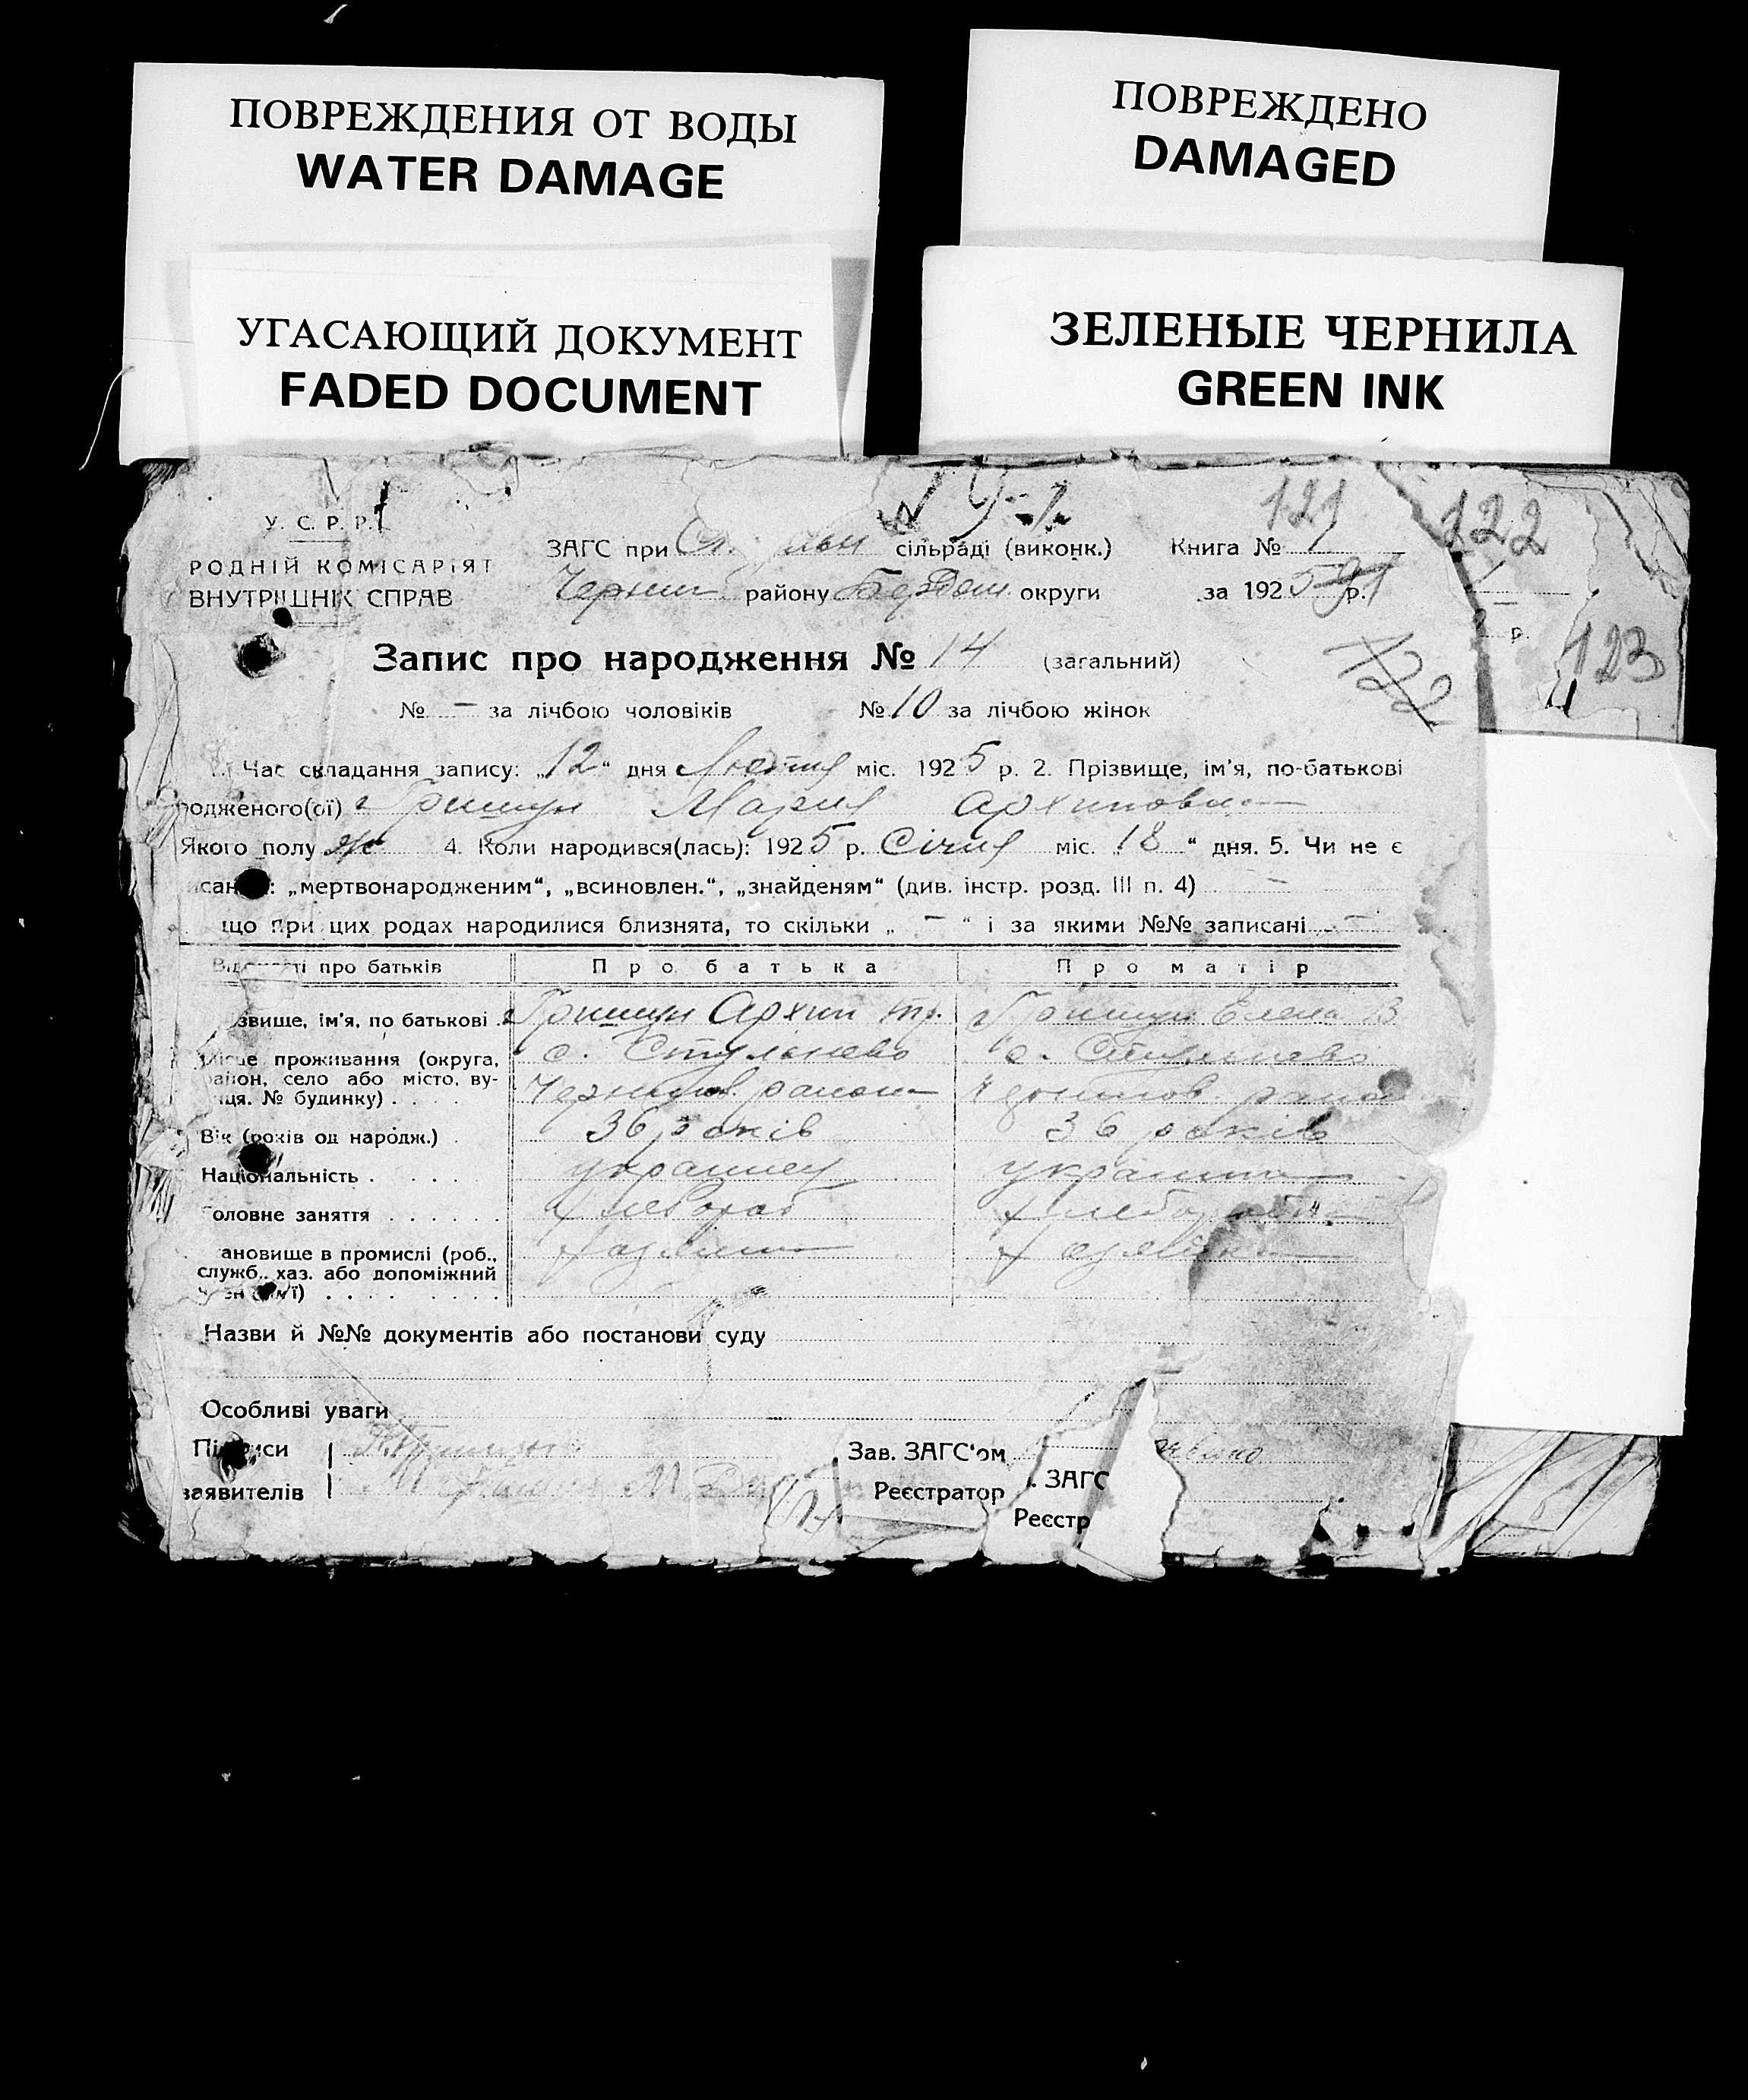 ПОВРЕЖДЕНИЯ ОТ ВОДЫ
WATER DAMAGE
ПОВРЕЖДЕНО
DAMAGED
УГАСАЮЩИЙ ДОКУМЕНТ
FADED DOCUMENT
ЗЕЛЕНЫЕ ЧЕРНИЛА
GREEN INK
121
122
У. С. Р. Р.
РОДНІЙ КОМІСАРІЯТ
ВНУТРІШНІХ СПРАВ
ЗАГС при сільраді (виконк.) Книга № 1
району округи за 1925 р.
р.
123
Запис про народження № 14 (загальний)
122
№ – за лічбою чоловіків № 10 за лічбою жінок
Час складання запису: „12“ дня Лютия міс. 1925 р. 2. Прізвище, ім'я, по-батькові
родженого(ої) Гришун Мария Архиповна
Якого полу ж 4. Коли народився(лась): 1925 р. Січня міс. „18“ дня. 5. Чи не є
„мертвонародженим“, „всиновлен.“, „знайденям“ (див. інстр. розд. III п. 4) –
що при цих родах народилися близнята, то скільки „–“ і за якими №№ записані –
Відомості про батьків Про батька Про матір
звище, ім'я, по батькові Гришун Архип Тр. Гришун Елена
Місце проживання (округа, с. Стульнево с. Стульнево
район, село або місто, ву-
ця. № будинку) Чернигов. района Чернигов. района
Вік (років од народж.) 36 років 36 років
Національність украинец украинка
Головне заняття хлебороб
ановище в промислі (роб., хазяин хазяйка
служб., хаз. або допоміжний
член сім'ї)
Назви й №№ документів або постанови суду
Особливі уваги
Підписи
заявителів
Зав. ЗАГС'ом
Реєстратор
. ЗАГС
Реєстр